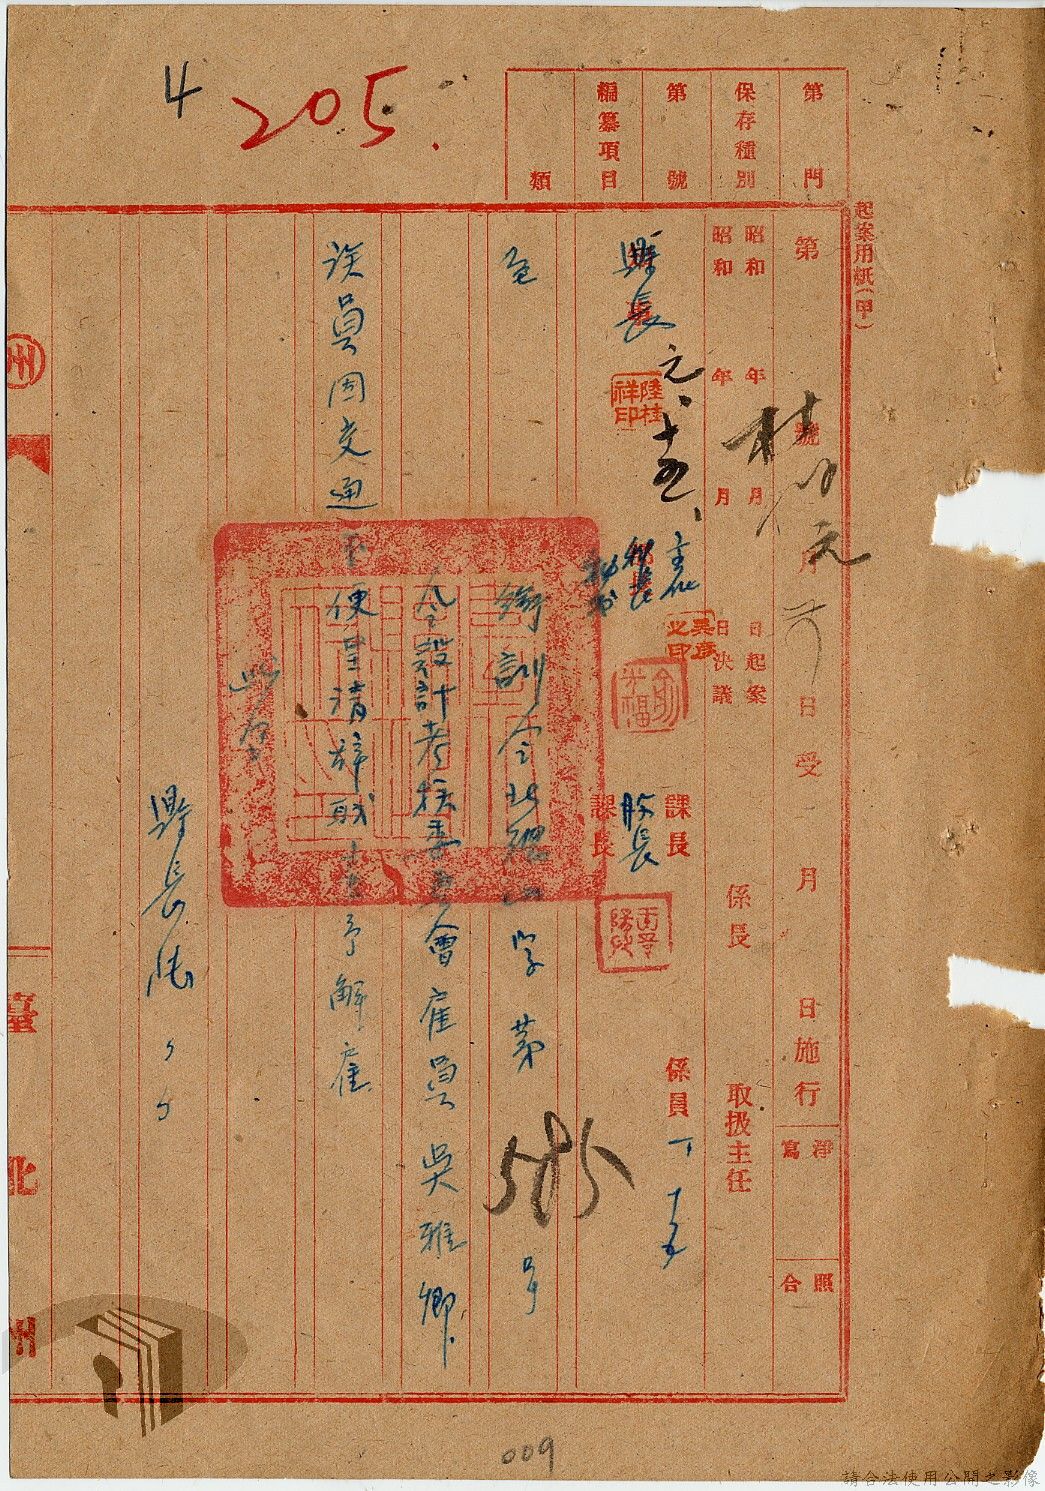 4
205.
起案用紙(甲)
第 門
保存種別
第 號
編纂項目
類
第 號 月 日受 月 日施行
淨寫
照合
昭和 年 月 日起案
昭和 年 月 日決議
係長
取扱主任
縣長
元、十五、
陸桂祥印
秘書
課長
股長
課長
係員
衙訓令北 字第585号
令設計考核委員會雇員吳雅卿
該員因交通不便呈請辭職 予解雇
此令
縣長陸、、
臺北州
009
請合法使用公開之影像